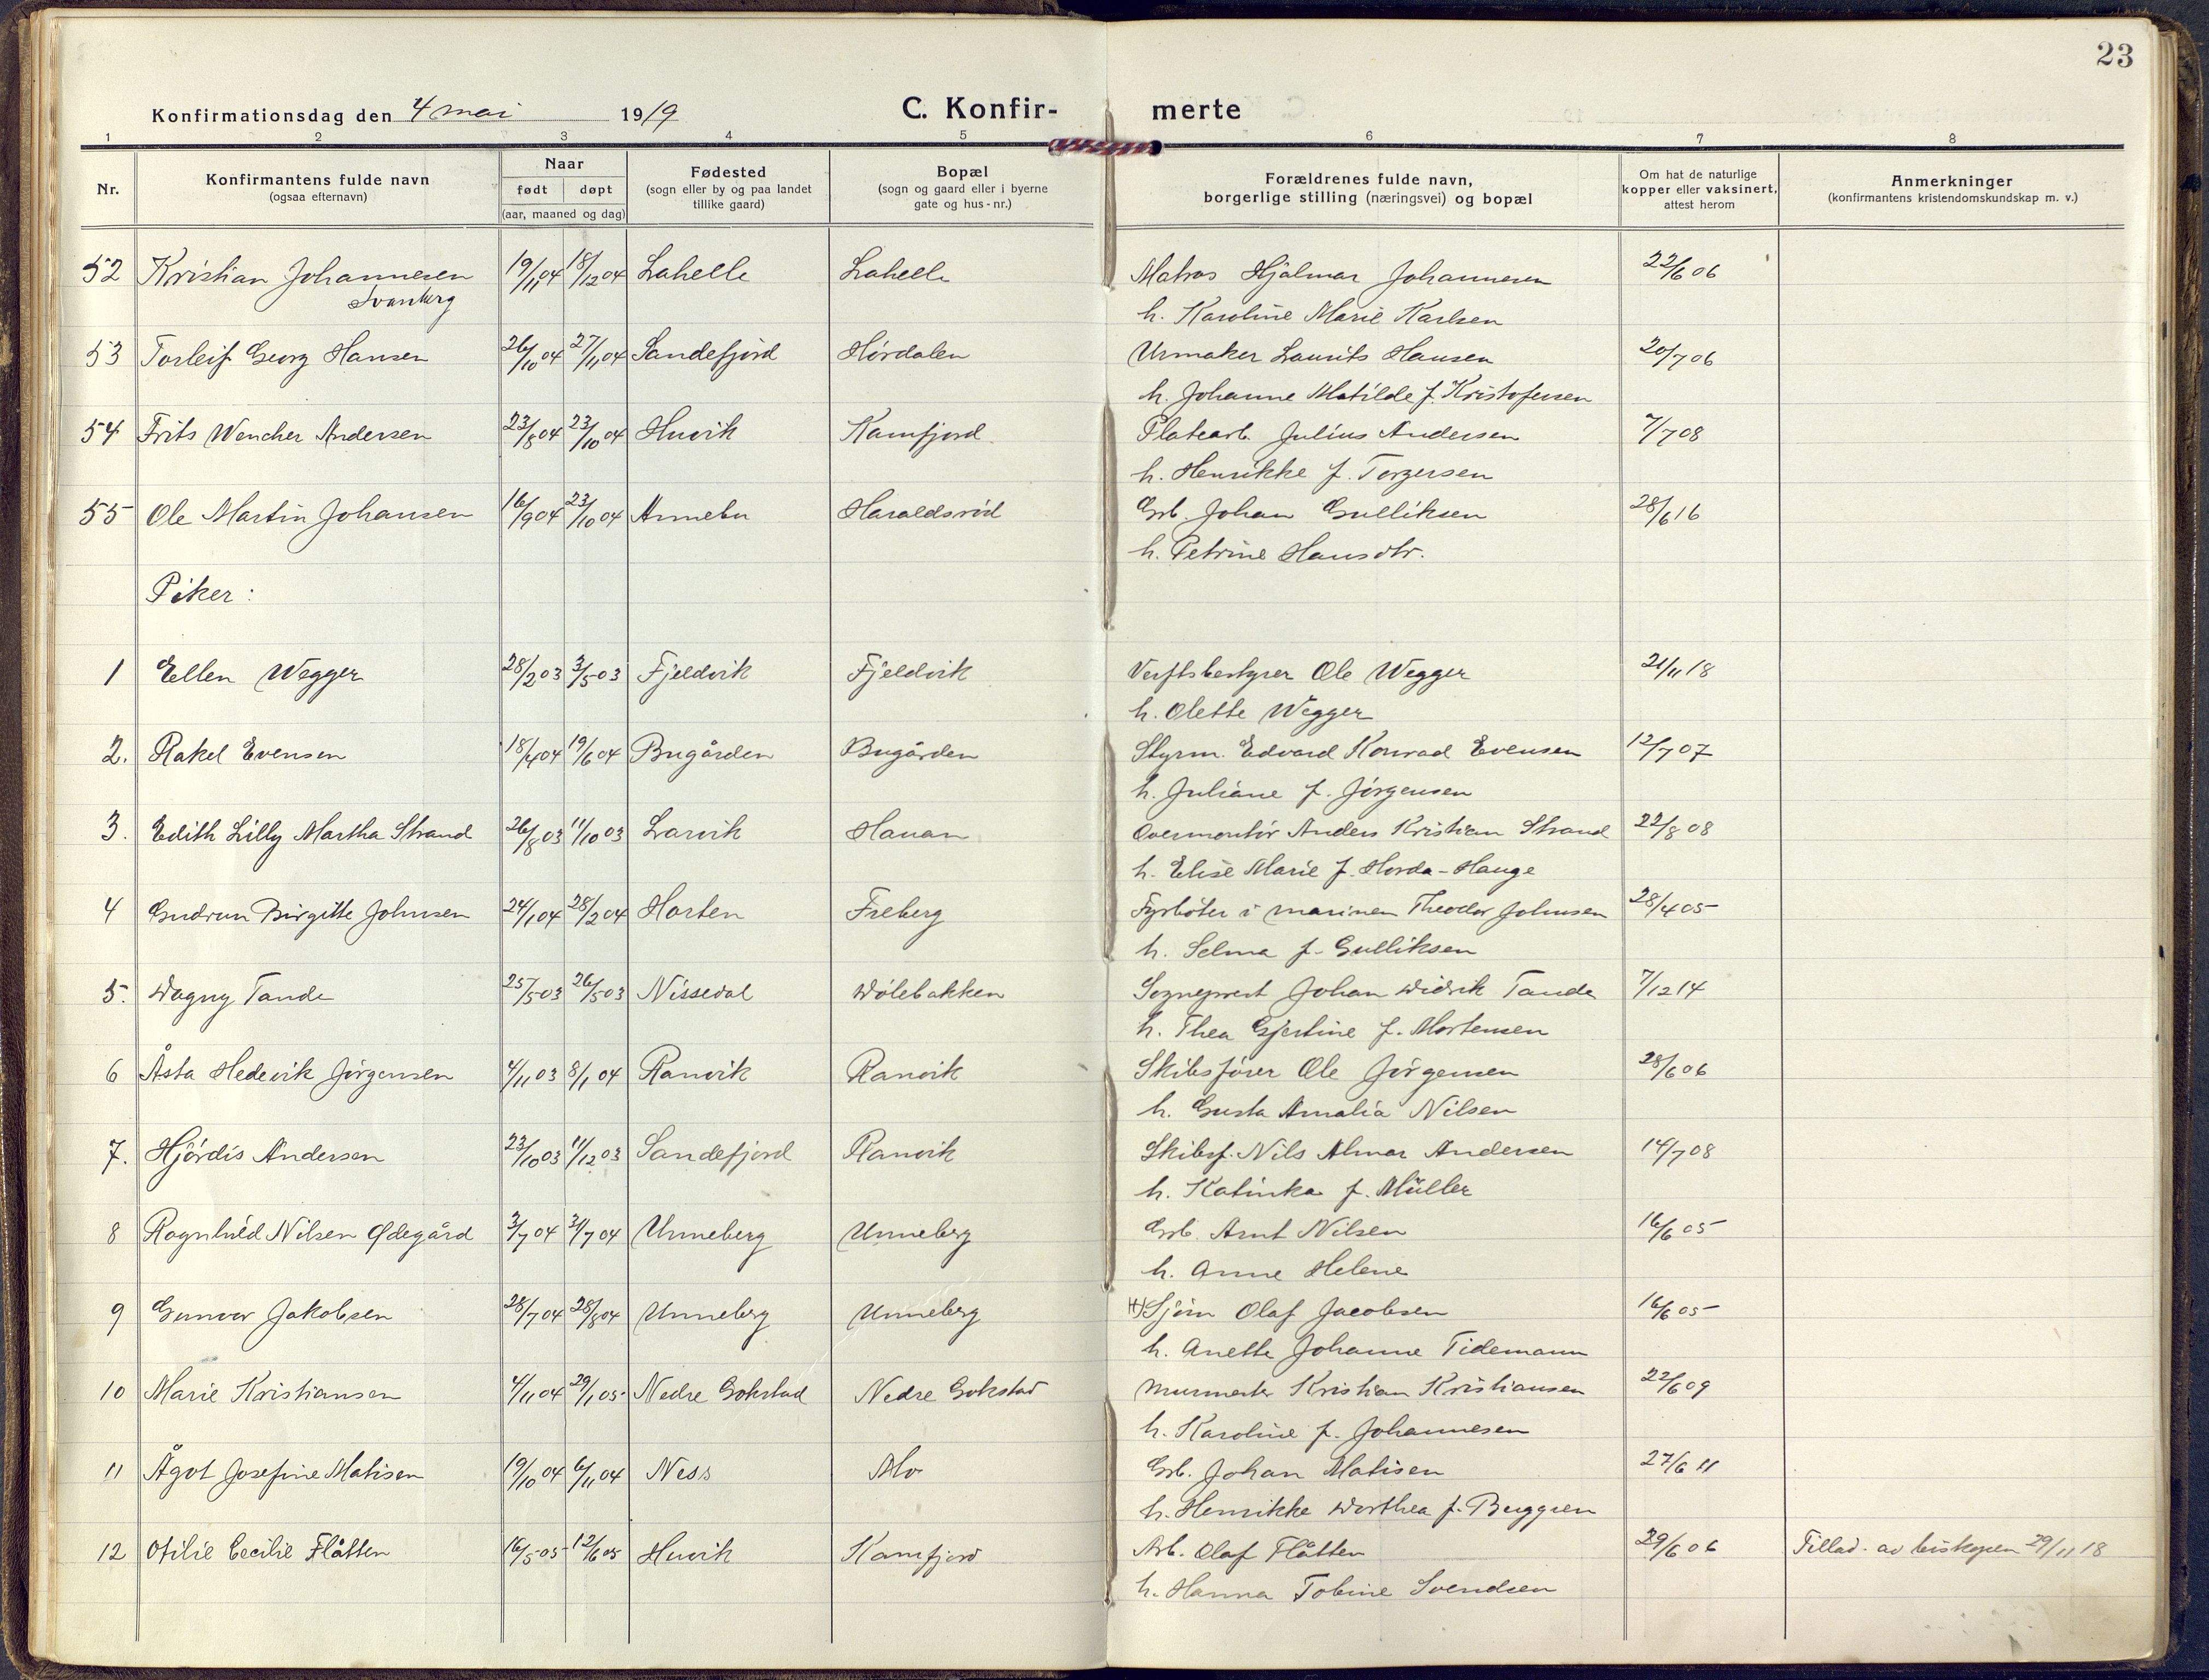 23
Konfirmationsdag den 4 mai 1919 C. Konfir- merte
1 2 3 4 5 6 7 8
Nr. Konfirmantens fulde navn (ogsaa efternavn) Naar født døpt (aar, maaned og dag) Fødested (sogn eller by og paa landet tillike gaard) Bopæl (sogn og gaard eller i byerne gate og hus-nr.) Forældrenes fulde navn, borgerlige stilling (næringsvei) og bopæl Om hat de naturlige kopper eller vaksinert, attest herom Anmerkninger (konfirmantens kristendomskundskap m. v.)
52 Kristian Johannesen 19/11 04 18/12 04 Lahelle Lahelle Matros Hjalmar Johannesen 22/6 06
Svanberg h. Karoline Marie Karlsen
53 Torleif Georg Hansen 26/10 04 27/11 04 Sandefjord Hørdalen Urmaker Laurits Hansen 20/7 06
h. Johanne Matilde f. Kristofersen
54 Frits Wencher Andersen 23/8 04 23/10 04 Huvik Kamfjord Platearb. Julius Andersen 7/7 08
h. Henrikke f. Torgersen
55 Ole Martin Johansen 16/9 04 23/10 04 Annebu Haraldsrød Grb. Johan Gulliksen 28/6 16
h. Petrine Hansdtr.
Piker:
1 Ellen Wegger 28/2 03 3/5 03 Fjeldvik Fjeldvik Verftsbestyrer Ole Wegger 21/11 18
h. Olette Wegger
2. Rakel Evensen 18/4 04 19/6 04 Bugården Bugården Styrm. Edvard Konrad Evensen 12/7 07
h. Juliane f. Jørgensen
3. Edith Lilly Martha Strand 26/8 03 11/10 03 Larvik Hauan Overmontør Anders Kristian Strand 22/8 08
h. Elise Marie f. Horda-Hauge
4 Gudrun Birgitte Johnsen 24/1 04 28/2 04 Horten Freberg Fyrbøter i marinen Theodor Johnsen 28/4 05
h. Selma f. Gulliksen
5. Dagny Tande 25/5 03 26/5 03 Nissedal Dølebakken Sogneprest Johan Didrik Tande 7/12 14
h. Thea Gjertine f. Mortensen
6 Åsta Hedevik Jørgensen 4/11 03 8/1 04 Ranvik Ranvik Skibsfører Ole Jørgensen 28/6 06
h. Gusta Amalia Nilsen
7. Hjørdis Andersen 23/10 03 11/12 03 Sandefjord Ranvik Skibsf. Nils Almar Andersen 14/7 08
h. Katinka f. Müller
8 Ragnhild Nilsen Ødegård 3/7 04 31/7 04 Unneberg Unneberg Grb. Arnt Nilsen 16/6 05
h. Anne Helene
9 Gunvor Jakobsen 28/7 04 28/8 04 Unneberg Unneberg Sjøm Olaf Jacobsen 16/6 05
h. Anette Johanne Tidemann
10 Marie Kristiansen 4/11 04 29/1 05 Nedre Gokstad Nedre Gokstad Murmester Kristian Kristiansen 22/6 09
h. Karoline f. Johannesen
11 Ågot Josefine Matisen 19/10 04 6/11 04 Ness Mo Grb. Johan Matisen 27/6 11
h. Henrikke Dorthea f. Berggren
12 Otilie Cecilie Flåtten 16/5 05 12/6 05 Huvik Kamfjord Arb. Olaf Flåtten 29/6 06 Tillad. av biskopen 29/11 18
h. Hanna Tobine Svendsen